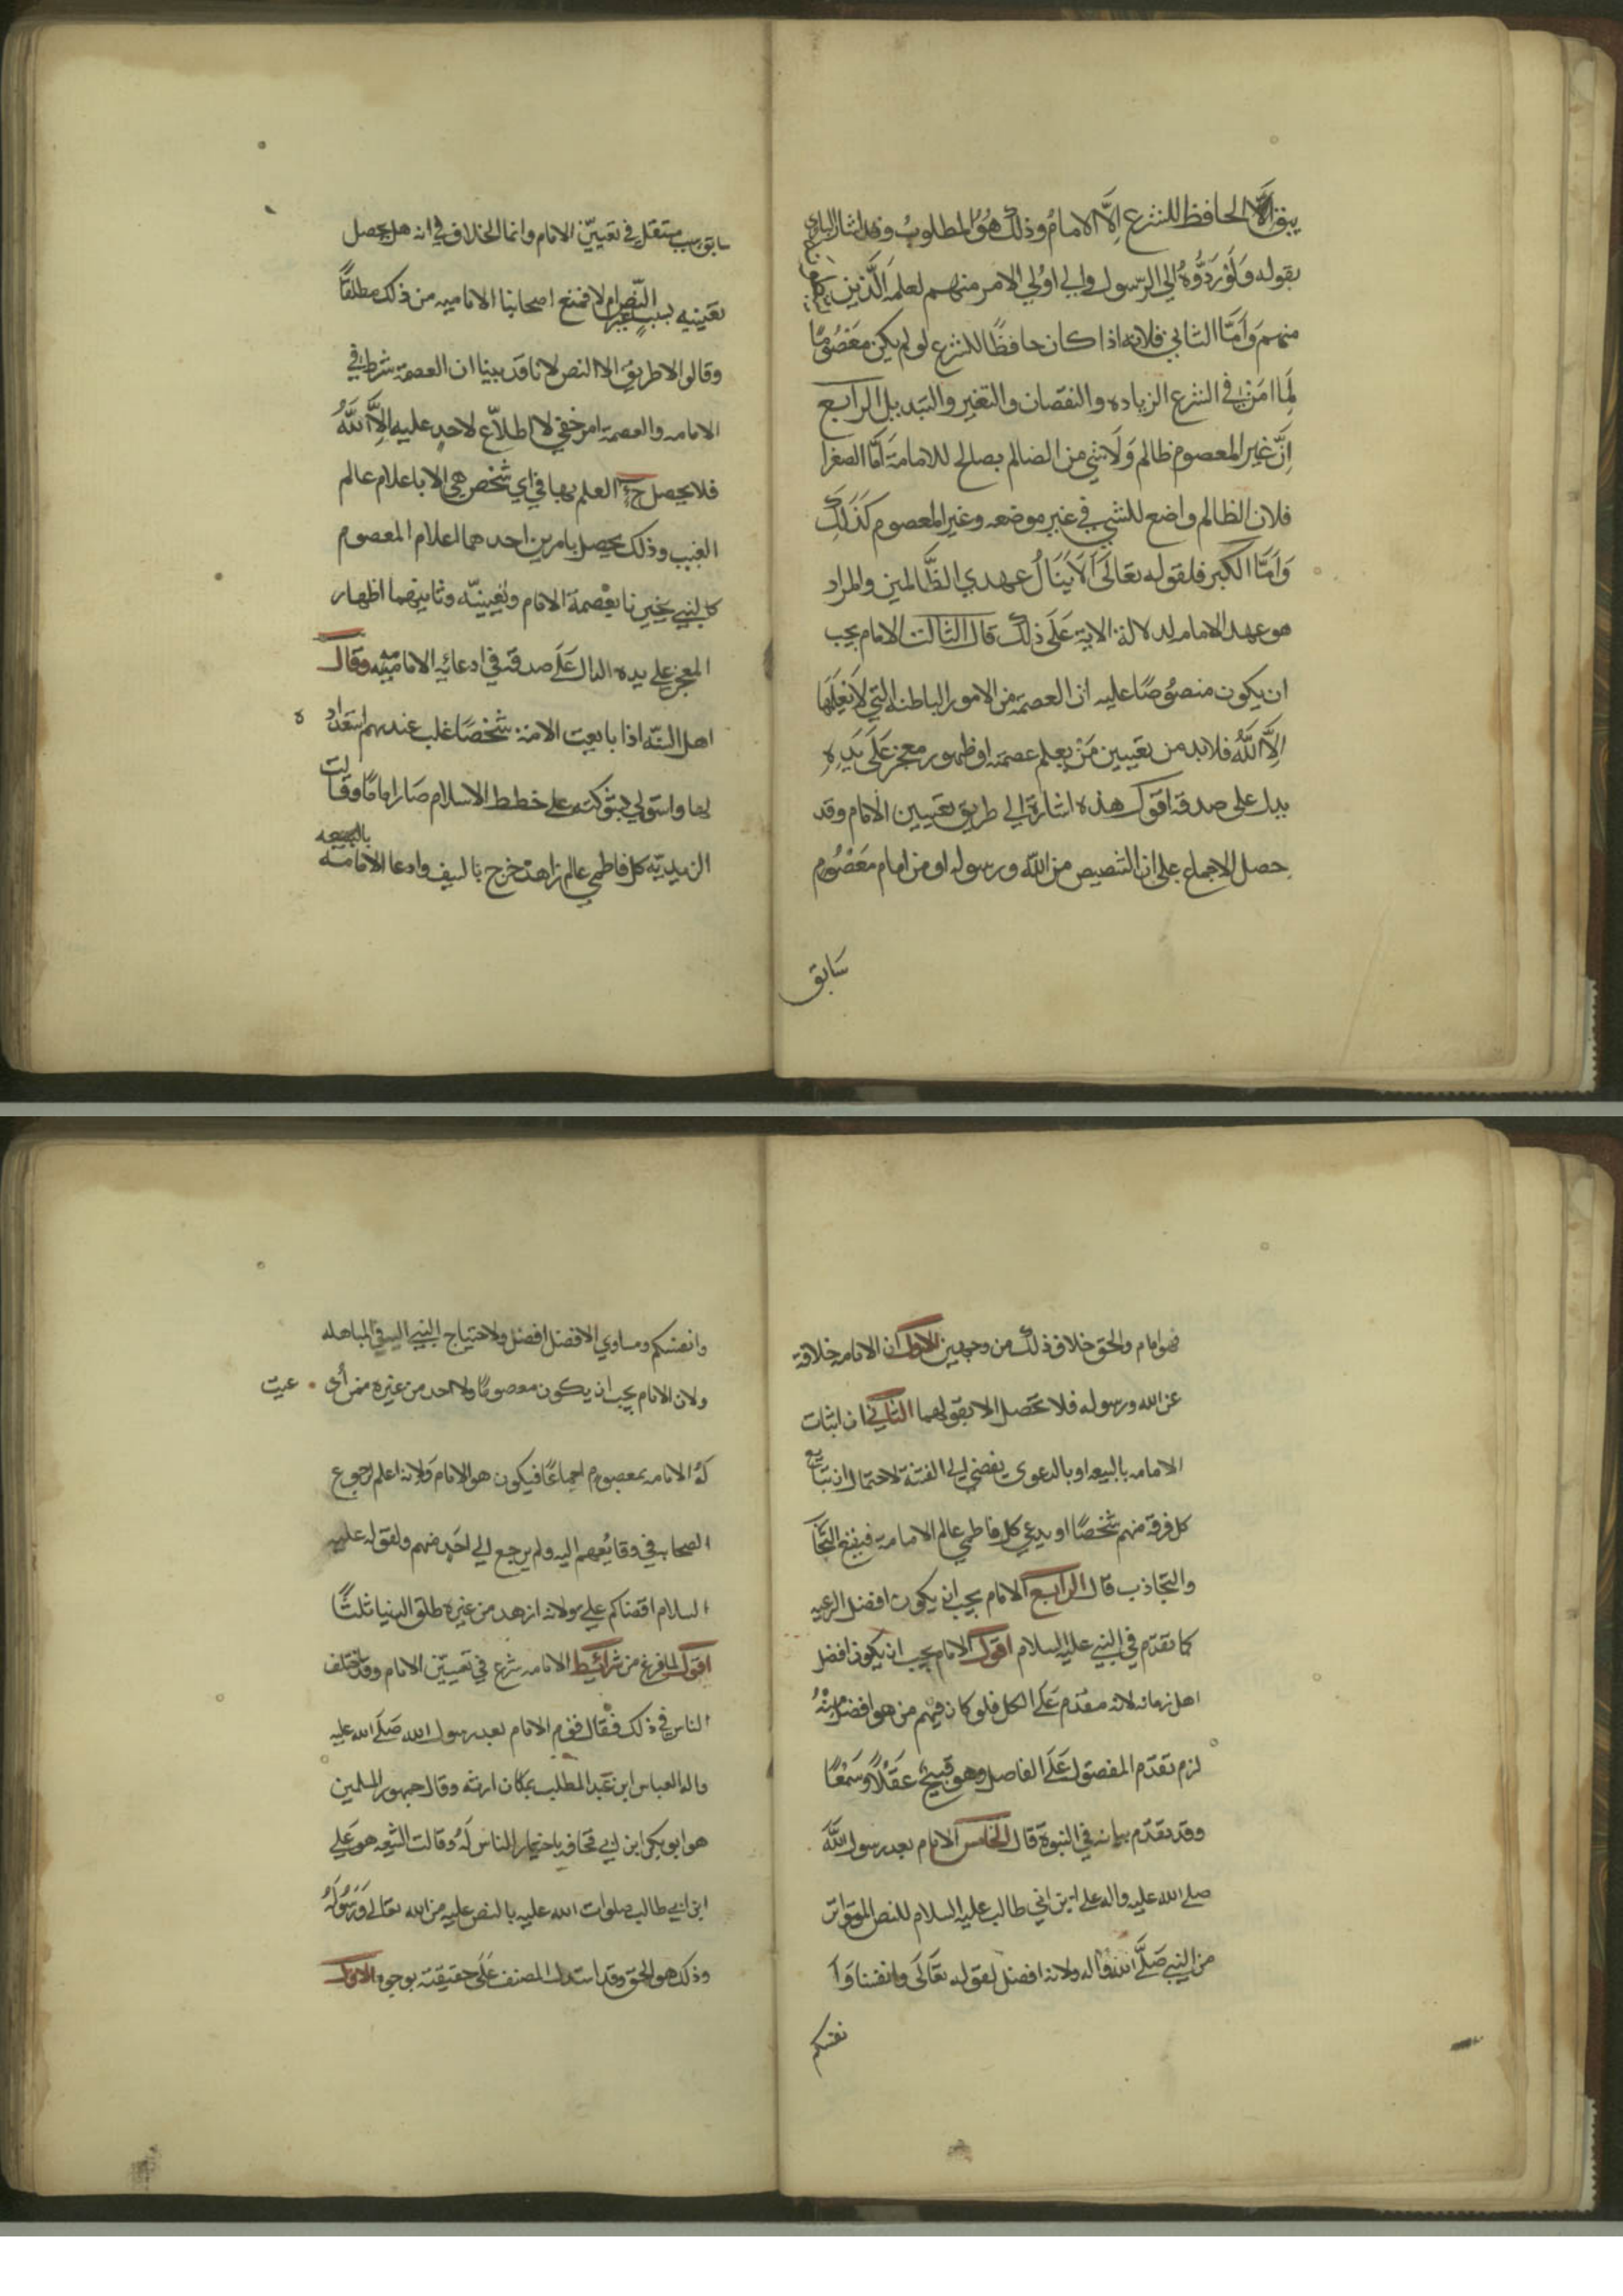 يبق الا الحافظ للشرع اِلَّا الامامُ وذلك هُوَ المطلوبُ وقد اشار الباري
بقوله وَلَوْ رَدُّوهُ اِلى الرّسول والي اوُلي الامر منهم لعلمَهُ اَلَّذين
منهم وَاَمَّا الثاني فلانه اذا كان حافظًا للشرع لو لم يكن مَعْصُومًا
لَمَا اَمِنَ في الشرع الزياده والنقصان والتغير والتبديل الرابع
اِنَّ غير المعصوم ظالم وَلَا شي من الضالم بصالح للامامة اَمَّا الصغرا
فلان الظالم واضع للشي في غير موضعه وغير المعصوم كَذَلِكَ
وَاَمَّا الكبر فلقوله تعَالَى لَا يَنَالُ عهدي الظَّالمين والمراد
هو عهد الامامه لدلالة الاية عَلَى ذلك قال الثالث الامام يجب
ان يكون منصُوصًا عليه اذ العصمة من الامور الباطنه التي لَا يَعْلَمُهَا
اِلَّا اللَّهُ فلا بد من تعيين مَنْ يعلم عصمته او ظهور معجز عَلَى يَدِهِ
يدل على صدقه اقول هذه اشارة الي طريق تعيين الامام وقد
حصل الاجماع على ان التنصيص من الله ورسوله او من امام مَعْصُوم
سَابق
سابق سبب مستقل في تعيين الامام وانما الخلاف في انه هل يحصل
تعَيينه بسبب غير النّص ام لا فمنع اصحابنا الاماميه من ذلك مطلقًا
وقالوا لا طريق الا النص لانا قد بينا ان العصمة شرط في
الامامه والعصمة امر خفي لا اطلاّع لاحدٍ عليه اِلاَّ اللَّهُ
فلا يحصل ح العلم بها في اي شخص هي الا باعلام عالم
الغيب وذلك يحصل بامرين احدهما اعلام المعصوم
كالنبي يخبرنا بعْصمة الامام وتعيينه وثانيهما اظهار
المعجز على يده الدال عَلَى صدقه في ادعائه الامامة وقال
اهل السّنه اذا بايعت الامة شخصًا غلب عندهم استعداده
لها واستولي بشوكته على خطط الاسلام صَار امامًا وقالت
الزيديّه كل فاطمي عالم زاهد خرج بالسيف وادعا الامامة
بالبيعه
فهو امام والحق خلاف ذلك من وجهين الاول ان الامامه خلافة
عن الله ورسوله فلا تحصل الا بقولهما الثاني ان اثبات
الامامه بالبيعه او بالدعوى يفضي الي الفتنة لاحتمال ان تبايع
كل فرقة منهم شخصًا او يدعي كل فاطمي عالم الامامة فيقع التحا
والتجاذب قال الرابع الامام يجب ان يكون افضل الرعيه
كما تقدّم في النبي عليه السلام اقول الامام يجب ان يكون افضل
اهل زمانه لانه مقدم عَلَى الكل فلو كان فيهم من هو افضل مِنْهُ
لزم تقدّم المفضول عَلَى الفاضل وهو قبيح عَقْلًا وَسَمْعًا
وقد تقدّم بيانه في النبوة قال الخامس الامام بعد رسول اللَّه
صلى الله عليه واله على ابن ابي طالب عليه السلام للنص المتواتر
من النبي صَلَّى الله واله ولانه افضل لقوله تعَالَى وانفسنا وَا
نفسكم
وانفسكم ومساوي الافضل افضل ولاحتياج النبي اليه في المباهله
ولان الامام يجب ان يكون معصومًا ولا احد من غيره ممن اُدُّ عيت
لهُ الامامه بمعصوم اجماعًا فيكون هو الامام وَلانه اعلم لرجوع
الصحابه في وقايُعهم اليه ولم يرجع الي احَدٍ منهم ولقوله عليه
السلام اقضاكم علي ولانه ازهد من غيره طلق الدنيا ثلثًا
اقول لما فرغ من شرائيط الامامه شرع في تعيّين الامام وقد اختلف
الناس في ذلك فقال قوم الامام بعد رسول الله صَلَّى الله عليه
واله العباس ابن عَبد المطلب بمكان ارثه وقال جمهور المسلمين
هو ابو بكر ابن ابي قحافه باختيار الناس لَهُ وقالت الشيعه هو عَلي
ابن ابي طالب صلوات الله عليه بالنص عليه من الله تعَالى وَرَسُولهُ
وذلك هو الحق وقد استدل المصنف عَلَى حقيقته بوجوه الاول